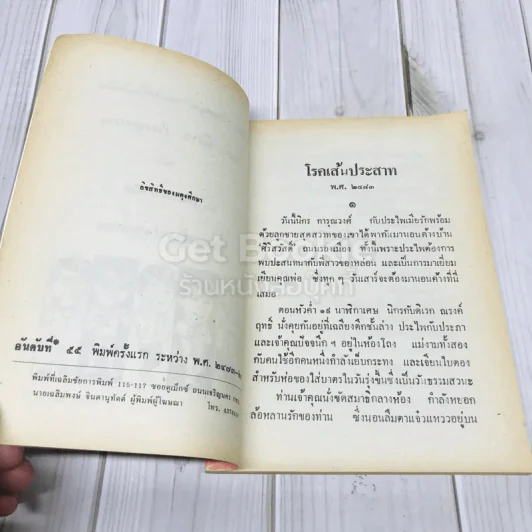 ลิขสิทธิ์ของผดุงศึกษา
อันดับที่ ๕๕ พิมพ์ครั้งแรก ระหว่าง พ.ศ. ๒๔๘๓-
พิมพ์ที่เฉลิมชัยการพิมพ์ 115-117 ซอยดูเม็กซ์ ถนนเจริญนคร
นายเฉลิมพงษ์ จินดานุทัตต์ ผู้พิมพ์ผู้โฆษณา โทร.
โรคเส้นประสาท
พ.ศ. ๒๔๘๓
๑
วันนี้นิกร การุณวงศ์ กับประไพเมียรักพร้อม
ด้วยลูกชายสุดสวาทของเขาได้พากันมานอนค้างบ้าน
"ศิริสวัสดิ์" ถนนรองเมือง ทั้งนี้เพราะประไพต้องการ
พบปะสนทนากับพี่สาวของหล่อน และเป็นการมาเยี่ยม
เยียนคุณพ่อ ซึ่งทุก ๆ วันเสาร์จะต้องมานอนค้างที่นี่
เสมอ
ตอนหัวค่ำ ๑๙ นาฬิกาเศษ นิกรกับดิเรก ณรงค์
ฤทธิ์ นั่งคุยกันอยู่ที่เฉลียงตึกชั้นล่าง ประไพกับประภา
และเจ้าคุณปัจจนึก ฯ อยู่ในห้องโถง แม่งามทั้งสอง
กับคนใช้อีกคนหนึ่งกำลังเย็บกระทง และเจียนใบตอง
สำหรับห่อของใส่บาตรในวันรุ่งขึ้นซึ่งเป็นวันธรรมสวนะ
ท่านเจ้าคุณนั่งขัดสมาธิ์กลางห้อง กำลังหยอก
ล้อหลานรักของท่าน ซึ่งนอนลืมตาแจ๋วแหววอยู่บน
Get Bookie
ร้านหนังสือบุ๊คกี้